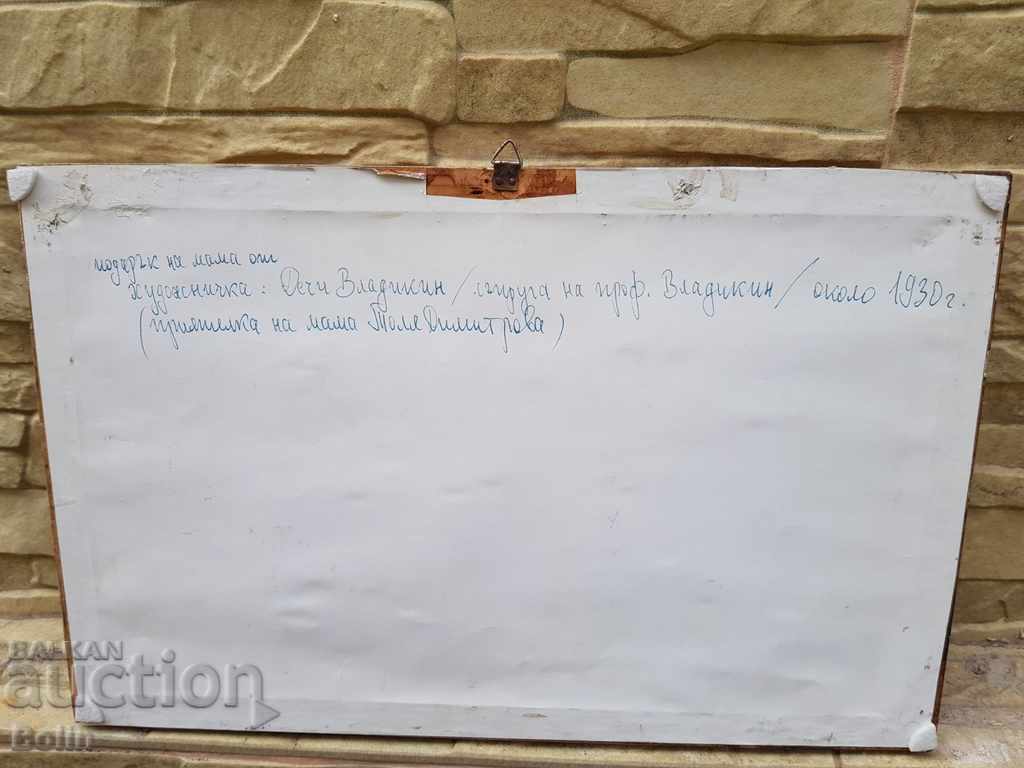 подарък на мама от
художничка: Дечи Владикин / съпруга на проф. Владикин / около 1930 г.
(приятелка на мама Толе Димитрова)
БАЛКАН
auction
Bolin